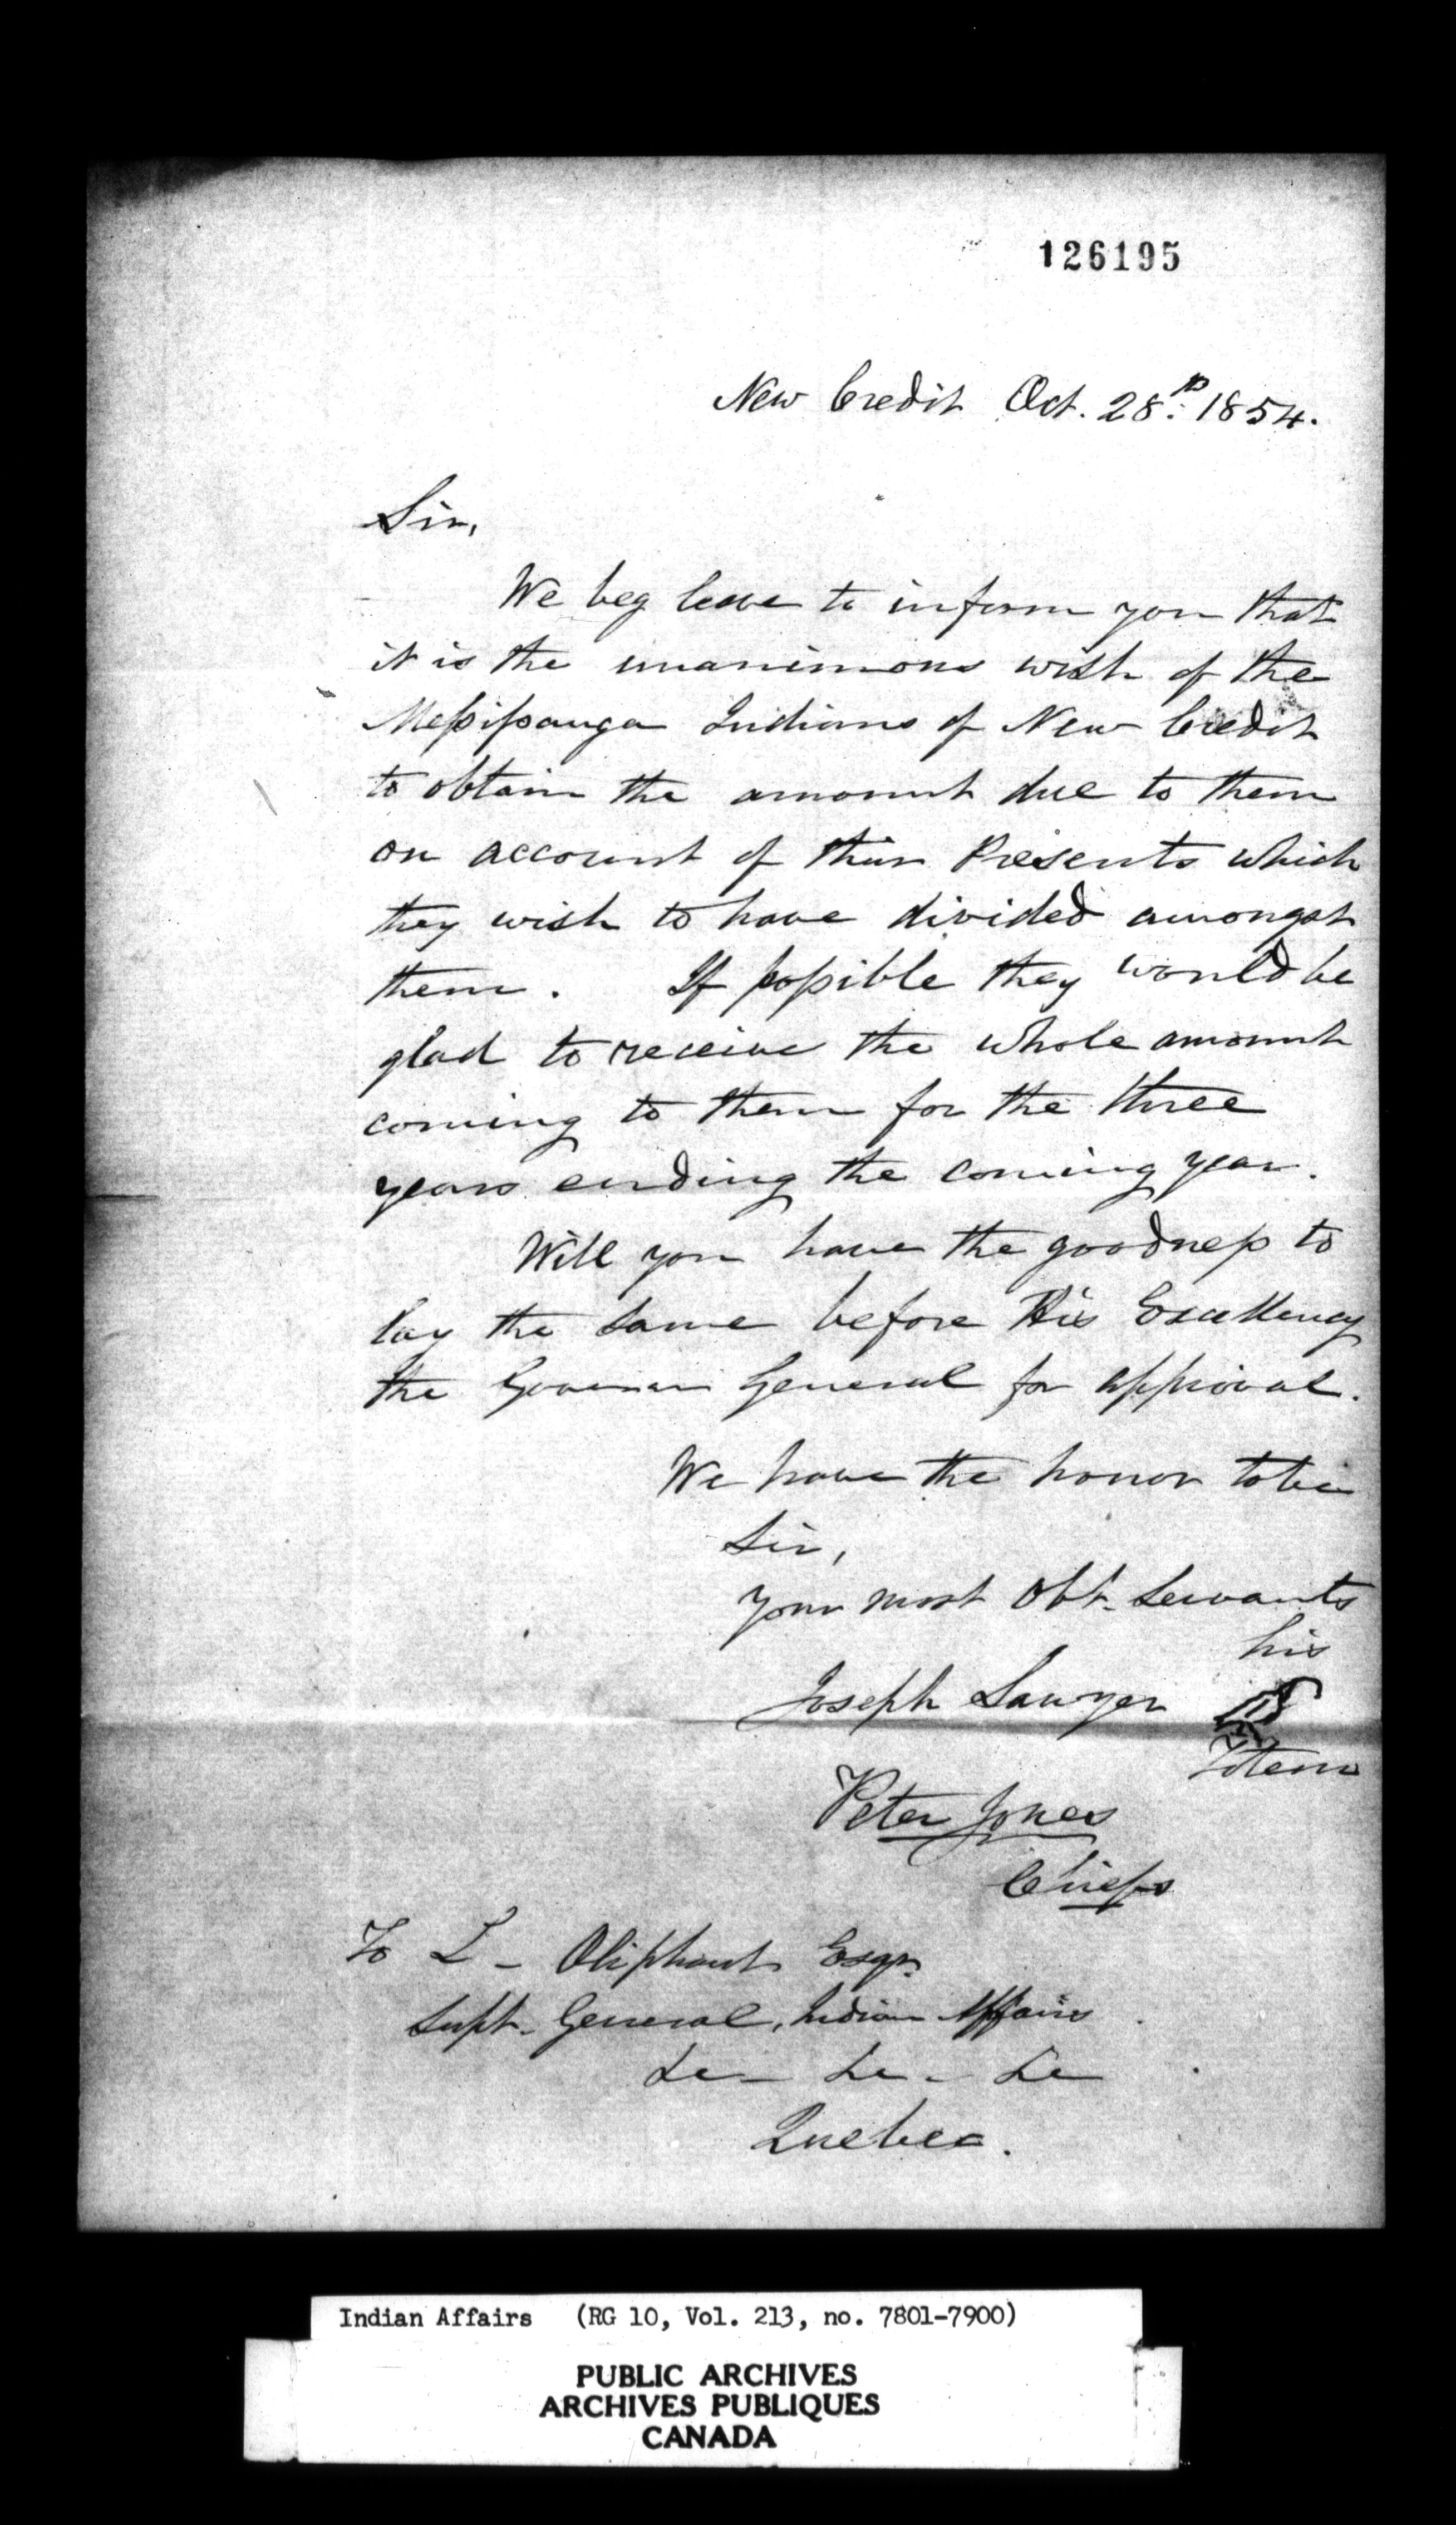 126195
New Credit Oct. 28th 1854.
Sir,
We beg leave to inform you that
it is the unanimous wish of the
Messissauga Indians of New Credit
to obtain the amount due to them
on account of their Presents which
they wish to have divided amongst
them. If possible they would be
glad to receive the whole amount
coming to them for the three
years ending the coming year.
Will you have the goodness to
lay the same before His Excellency
the Governor General for approval.
We have the honor to be
Sir,
your most Obt. Servants
his
Joseph Sawyer
Totem
Peter Jones
Chiefs
To L - Oliphant Esqr.
Supt. General, Indian Affairs
&c - &c - &c
Quebec.
Indian Affairs (RG 10, Vol. 213, no. 7801-7900)
PUBLIC ARCHIVES
ARCHIVES PUBLIQUES
CANADA